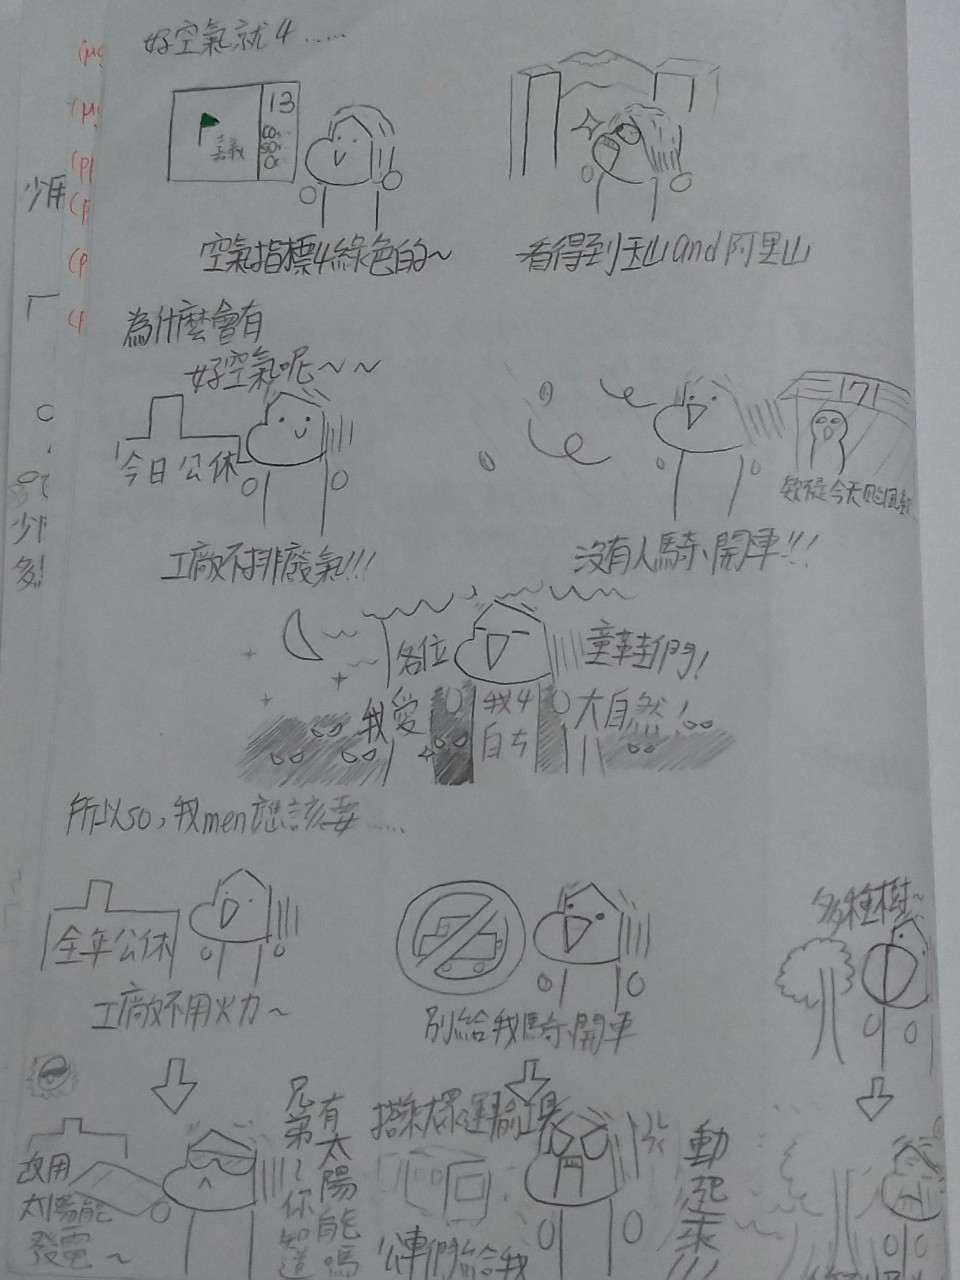 好空氣就4......
13
嘉義
CO2
SOx
Ox
空氣指標4綠色的~
看得到玉山and阿里山
為什麼會有
好空氣呢~~
今日公休
171
欸不是今天颱風欸
工廠不排廢氣!!!
沒有人騎、開車!!!
各位
童鞋們!
我愛
大自然!
我4
白ㄘ
所以so,我men應該要......
全年公休
工廠不用火力~
別給我騎、開車
多種樹~
改用
太陽能
發電~
兄弟~你知道
有太陽能嗎
搭乘大眾運輸工具
公車們給我
動起來!!!
少用
厂
少
多
(μg
(μ
(pp
(p
(p
(p